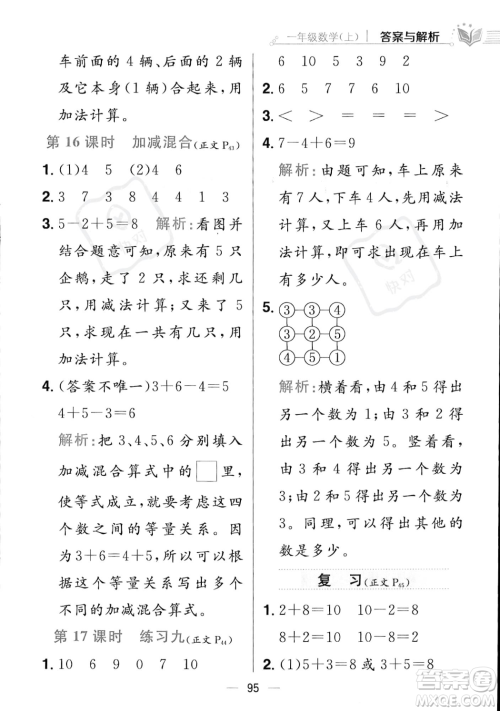 一年级数学(上) 答案与解析
车前面的 4 辆、后面的 2 辆
及它本身(1 辆)合起来，用
加法计算。
第 16 课时 加减混合(正文 P43)
1. (1)4 5 (2)4 6
2. 3 7 3 8 4 4 1 3
3. 5－2＋5＝8 解析：看图并
结合题意可知，原来有 5 只
企鹅，走了 2 只，求还剩几
只，用减法计算；又来了 5
只，求现在一共有几只，用
加法计算。
4. (答案不唯一)3＋6－4＝5
4＋5－3＝6
解析：把 3、4、5、6 分别填入
加减混合算式中的□里，
使等式成立，就要清楚这四
个数之间的等量关系，如
3＋6＝4＋5，所以只要满足
这样的等量关系，就能写出
不同的加减混合算式。
第 17 课时 练习九(正文 P44)
1. 10 6 9 0 7 10
10 8 7 9 10 6
2. 5 6 5 7 6 10
3. ＜ ＞ ＝ ＞ ＝ ＝
4. 7－4＋6＝9
解析：由题可知，车上原来
有 7 人，下车 4 人，用减法
计算；又上车 6 人，用加法
计算，即可求出现在车上
有多少人。
5. ③ ④ ①
③ ② ③
② ② ④
④ ⑤ ①
解析：横着看，由 4 和 5 得出
另一个数为 1，由 2 和 4 得出
另一个数为 2。竖着看，
由 3 和 2 得出另一个数为
3。同理，可以求出其他的
数是多少。
复 习(正文 P45)
1. 2＋8＝10 10－2＝8
8＋2＝10 10－8＝2
2. (1)5＋3＝8 或 3＋5＝8
95